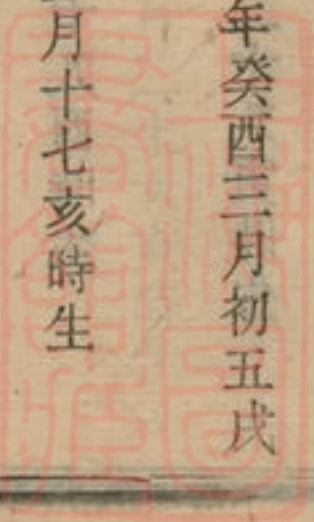 年癸酉三月初五戌
月十七亥時生